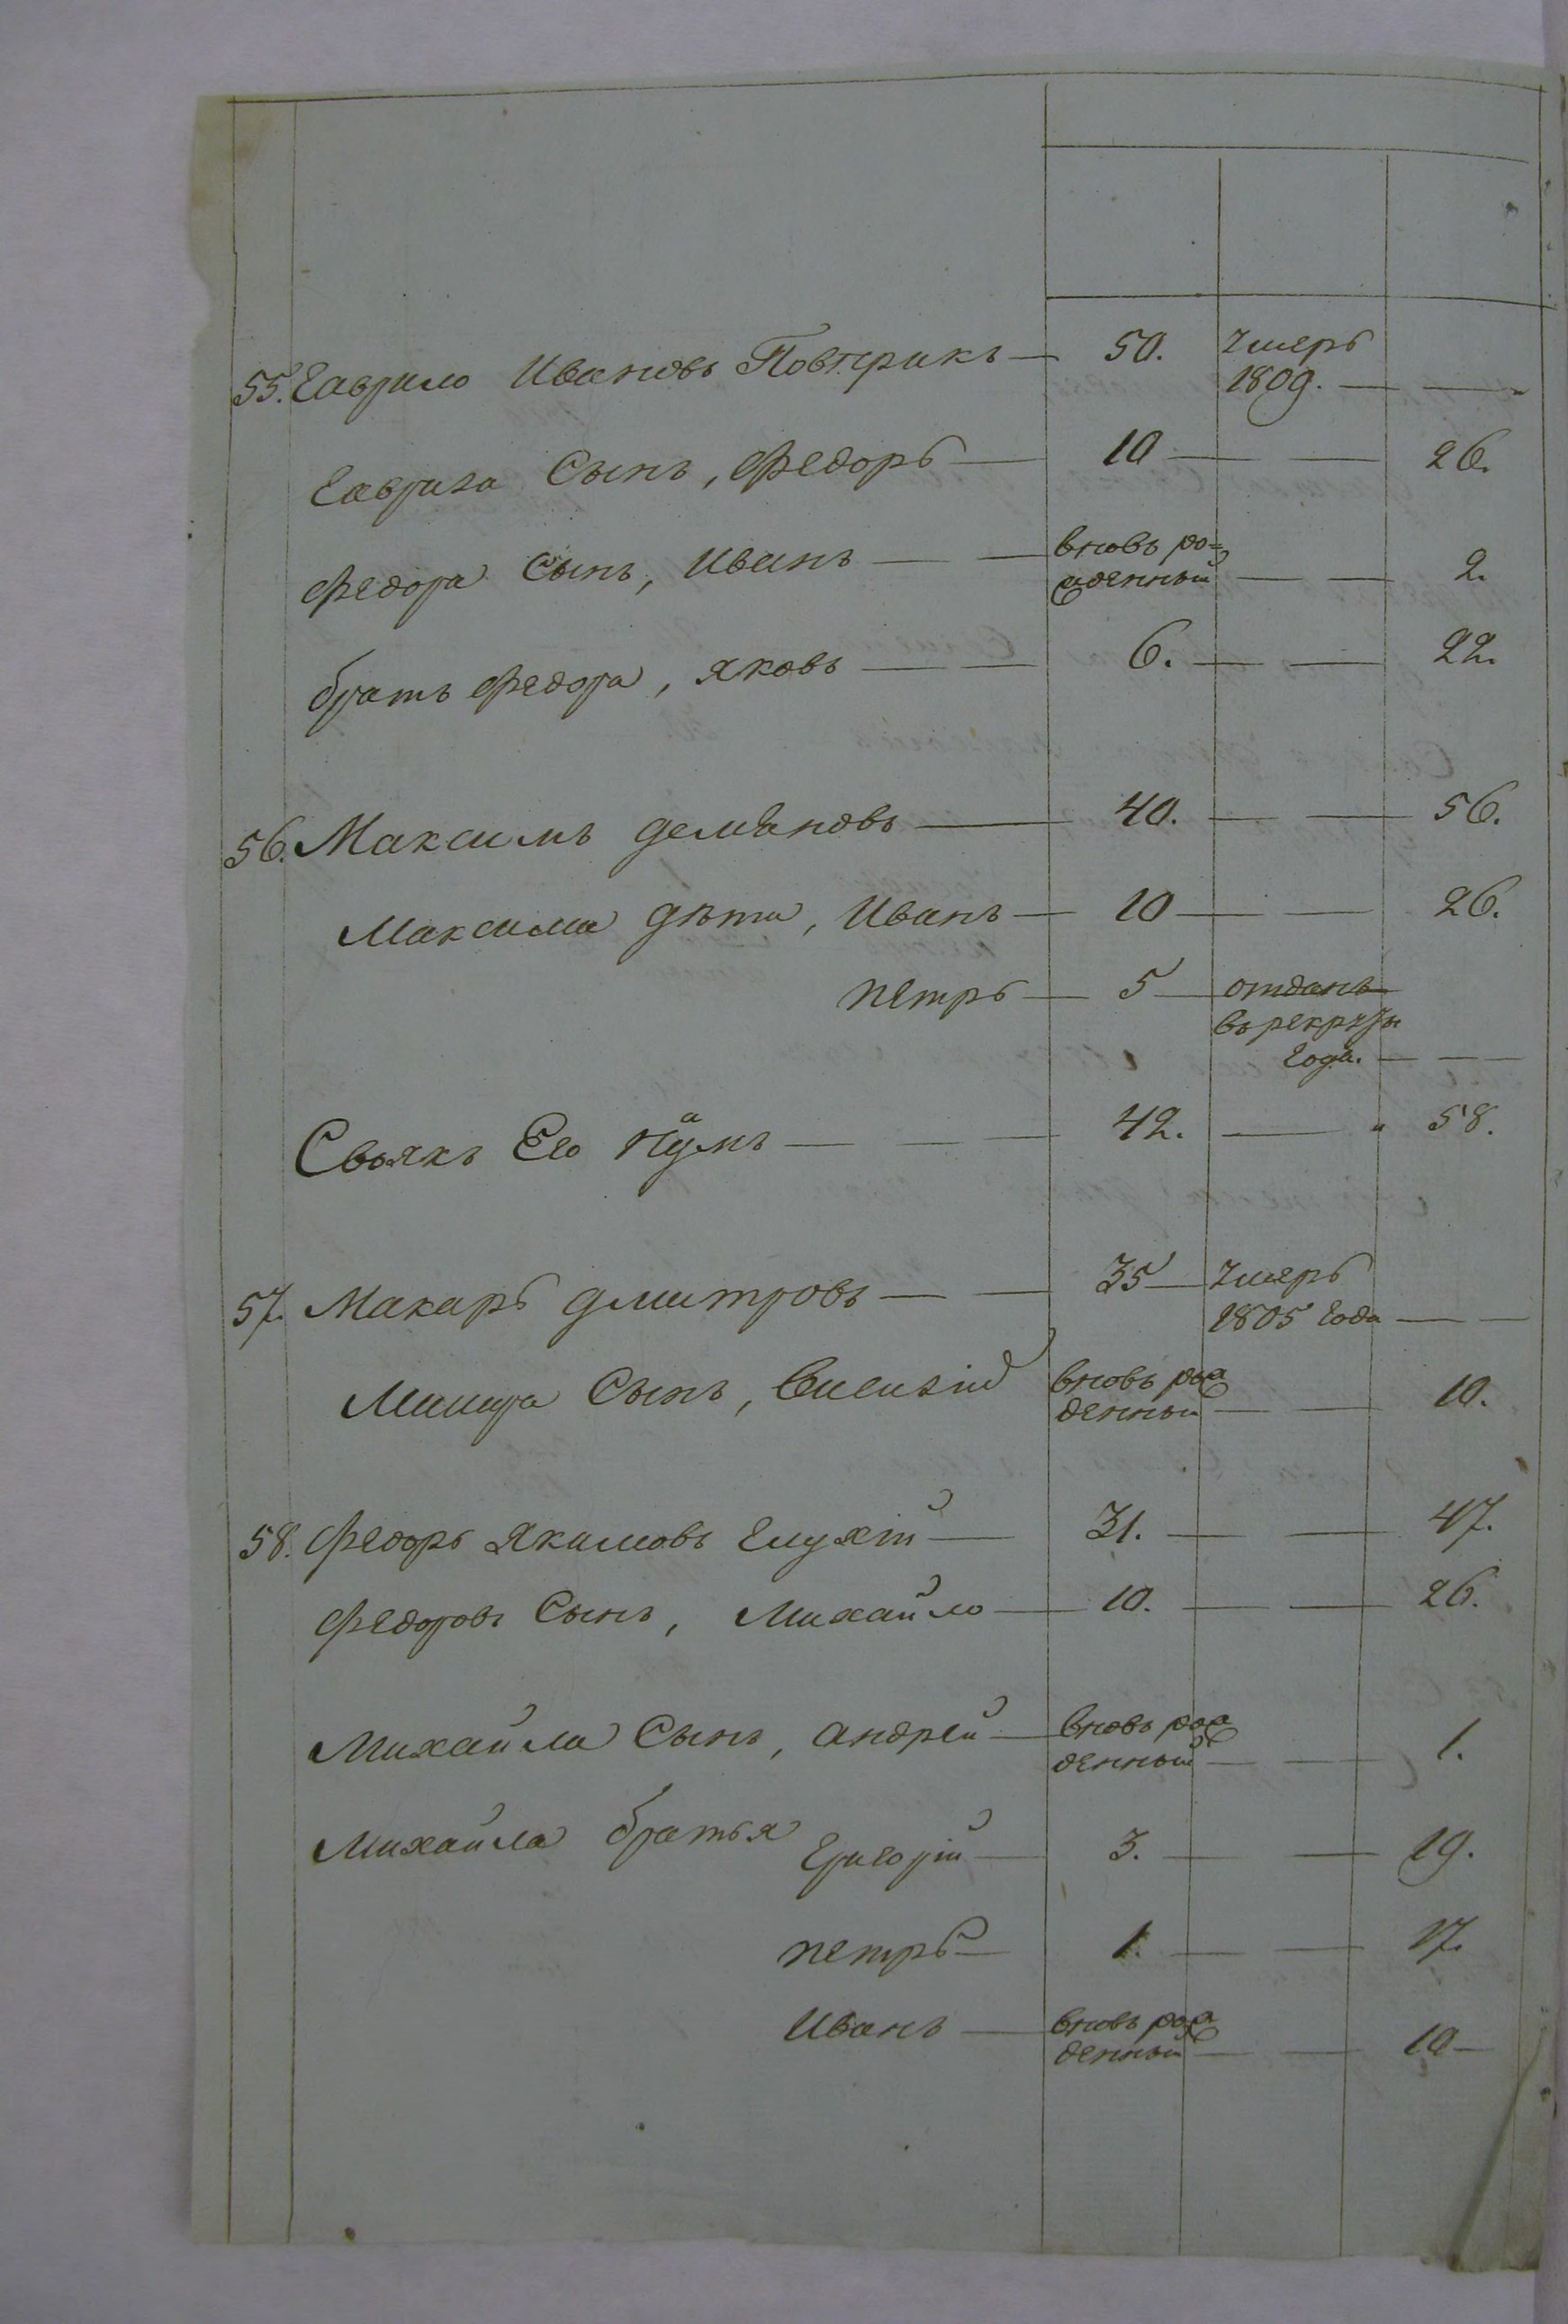 55. Гаврило Ивановъ Повтрикъ — 50. умеръ
1809. — —
Гаврила Сынъ, Федоръ — 10 — — 26.
Федора Сынъ, Иванъ — — вновь ро=
жденный — — 2.
братъ Федора, Яковъ — — 6. — — 22.
56. Максимъ Демьяновъ — 40. — — 56.
Максима дѣти, Иванъ — 10 — — 26.
петръ — 5 — отданъ
въ рекруты
года. — —
Своякъ Его Наумъ — — — 42. — 58.
57. Макаръ Дмитровъ — — 35 — умеръ
1805 года — —
Сынъ, вновь рож
денный — — 10.
58. Федоръ Якимовъ — 31. — — 47.
Федоровъ Сынъ, Михайло — 10. — — 26.
Михайла Сынъ, андрей — вновь рож
денный — — 1.
Михайла братья Григорій — 3. — — 19.
петръ — 1. — — 17.
Иванъ — вновь рож
денный — — 10 —